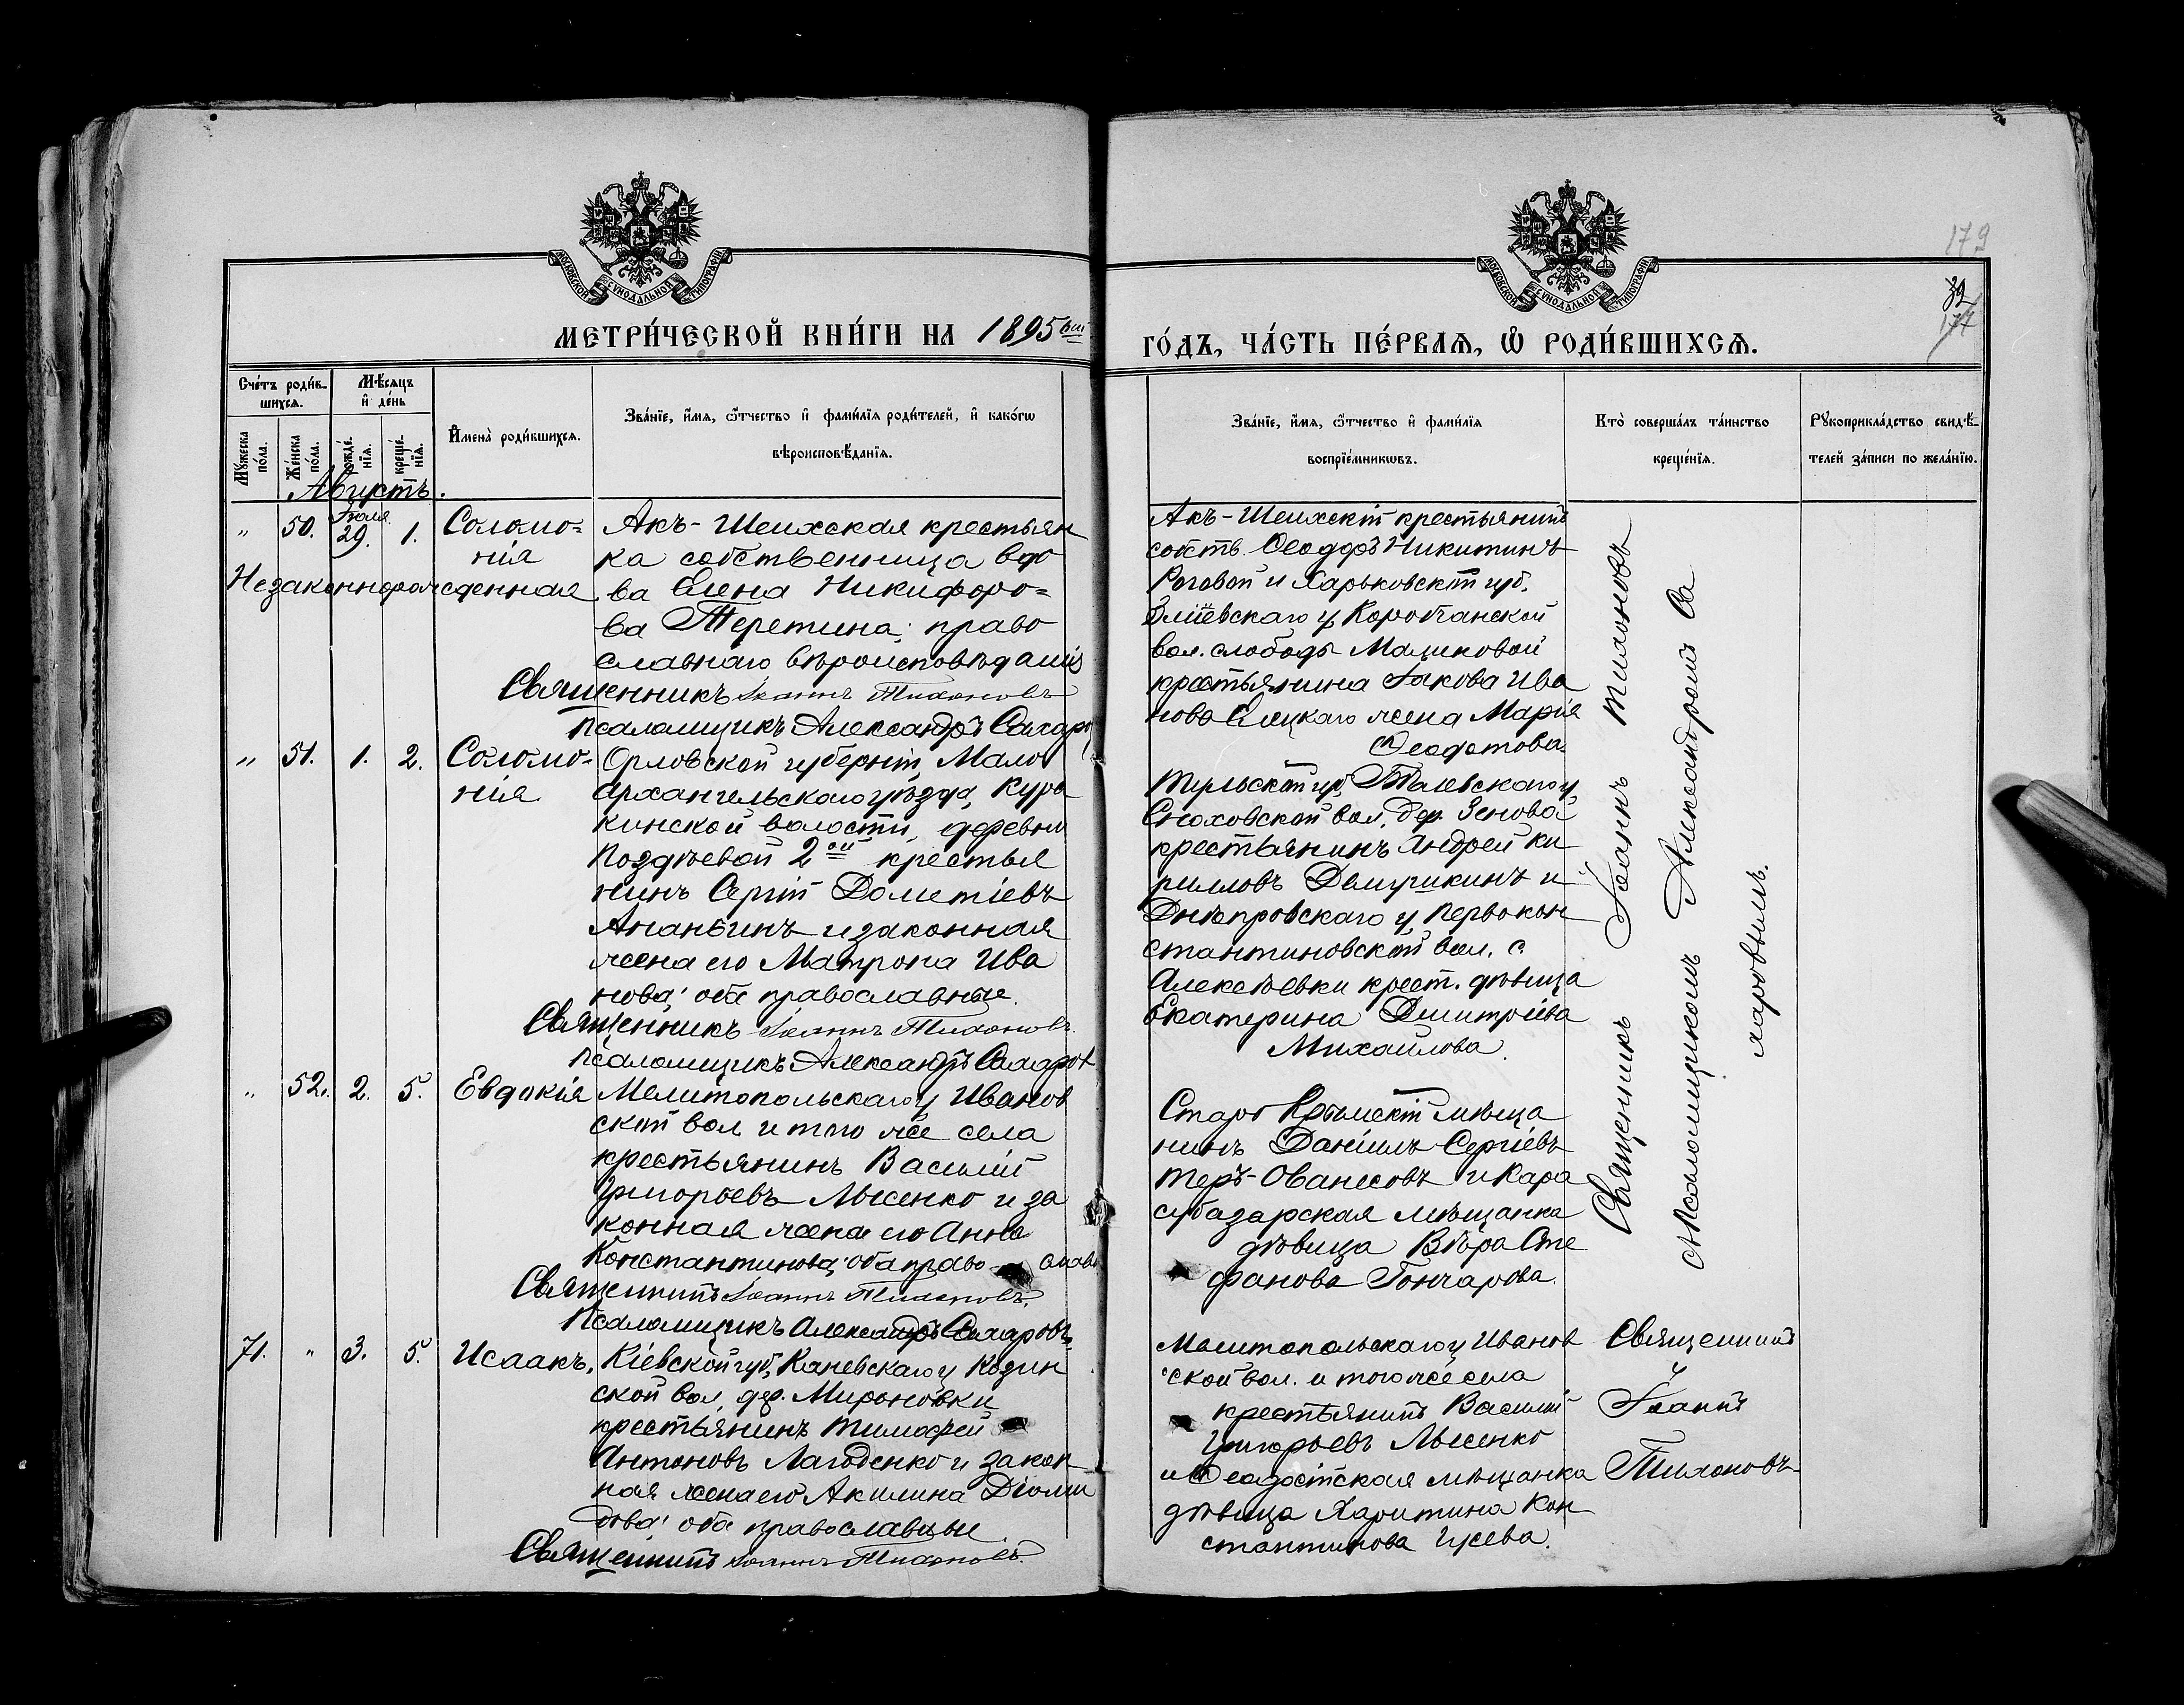 179
МОСКОВСКОЙ СѴНОДАЛЬНОЙ ТИПОГРАФІИ
МОСКОВСКОЙ СѴНОДАЛЬНОЙ ТИПОГРАФІИ
32
177
МЕТРИ́ЧЕСКОЙ КНИ́ГИ НА 1895 ГО́ДЪ, ЧА́СТЬ ПЕ́РВАЯ, Ѡ҆ РОДИ́ВШИХСѦ.
Сче́тъ роди́в-
шихсѧ.
Мѣ́сяцъ
и҆ де́нь
Мꙋ́жеска
по́ла.
Же́нска
по́ла.
рожде́-
нїѧ.
креще́-
нїѧ.
И҆мена̀ роди́вшихсѧ.
Зва́нїе, и҆́мѧ, ѻ҆́тчество и҆ фами́лїѧ роди́телей, и҆ како́гѡ
вѣроисповѣ́данїѧ.
Зва́нїе, и҆́мѧ, ѻ҆́тчество и҆ фами́лїѧ
воспрїе́мникѡвъ.
Кто̀ соверша́лъ та́инство
креще́нїѧ.
Рꙋкоприкла́дство свидѣ́-
телей за́писи по жела́нїю.
Августъ.
„ 50. Іюля 29. 1. Соломо-
нія
Незаконнорожденная
Акъ-Шеихская крестьян
ка собственница вдо
ва Елена Никифоро-
ва Теретина; право
славнаго вѣроисповѣданія
Священникъ Іоаннъ Тихоновъ
Псаломщикъ Александръ Сахаров
Акъ-Шеихскій крестьянинъ
собств. Ѳеодоръ Никитинъ
Роговой и Харьковской губ.
Зміевскаго у. Коробчанской
вол. слободы Малиновой
крестьянина Іакова Ива
нова Елецкаго жена Марія
Ѳеодотова.
„ 51. 1. 2. Соломо-
нія.
Орловской губерніи, Мало
архангельскаго уѣзда, Кура
кинской волости, деревни
Поздѣевой 2ой крестья
нинъ Сергій Дометіевъ
Ананьинъ и законная
жена его Матрона Ива
нова; оба православные.
Священникъ Іоаннъ Тихоновъ.
Псаломщикъ Александръ Сахаров
Тульской губ.
вол. дер. Зенова
крестьянинъ Андрей Ки
рилловъ и
Днѣпровскаго у. Первокон
стантиновской вол. с.
Алексѣевки крест. дѣвица
Екатерина Димитріева
Михайлова.
„ 52. 2. 5. Евдокія
Мелитопольскаго у. Иванов
ской вол. и того же села
крестьянинъ Василій
Григорьевъ Лысенко и за
конная жена его Анна
Константинова; оба право слав
Священникъ Іоаннъ Тихоновъ.
Псаломщикъ Александръ Сахаровъ
Старо Крымскій мѣща
нинъ Даніилъ Сергіевъ
Теръ-Ованесовъ и Кара
субазарская мѣщанка
дѣвица Вѣра Сте
фанова Гончарова.
Священникъ Іоаннъ Тихоновъ
съ Псаломщикомъ Александромъ Са
харовымъ.
71. „ 3. 5. Исаакъ.
Кіевской губ. Каневскаго у. Козин
ской вол. дер. Мироновки
крестьянинъ Тимофей
Антоновъ Лагоденко и закон
ная жена его Акилина Діоми
дова; оба православные
Священникъ Іоаннъ Тихоновъ.
Мелитопольскаго у. Иванов
ской вол. и того же села
крестьянинъ Василій
Григорьевъ Лысенко
и Ѳеодосійская мѣщанка
дѣвица Харитина Кон
стантинова Гусева.
Священникъ
Іоаннъ
Тихоновъ